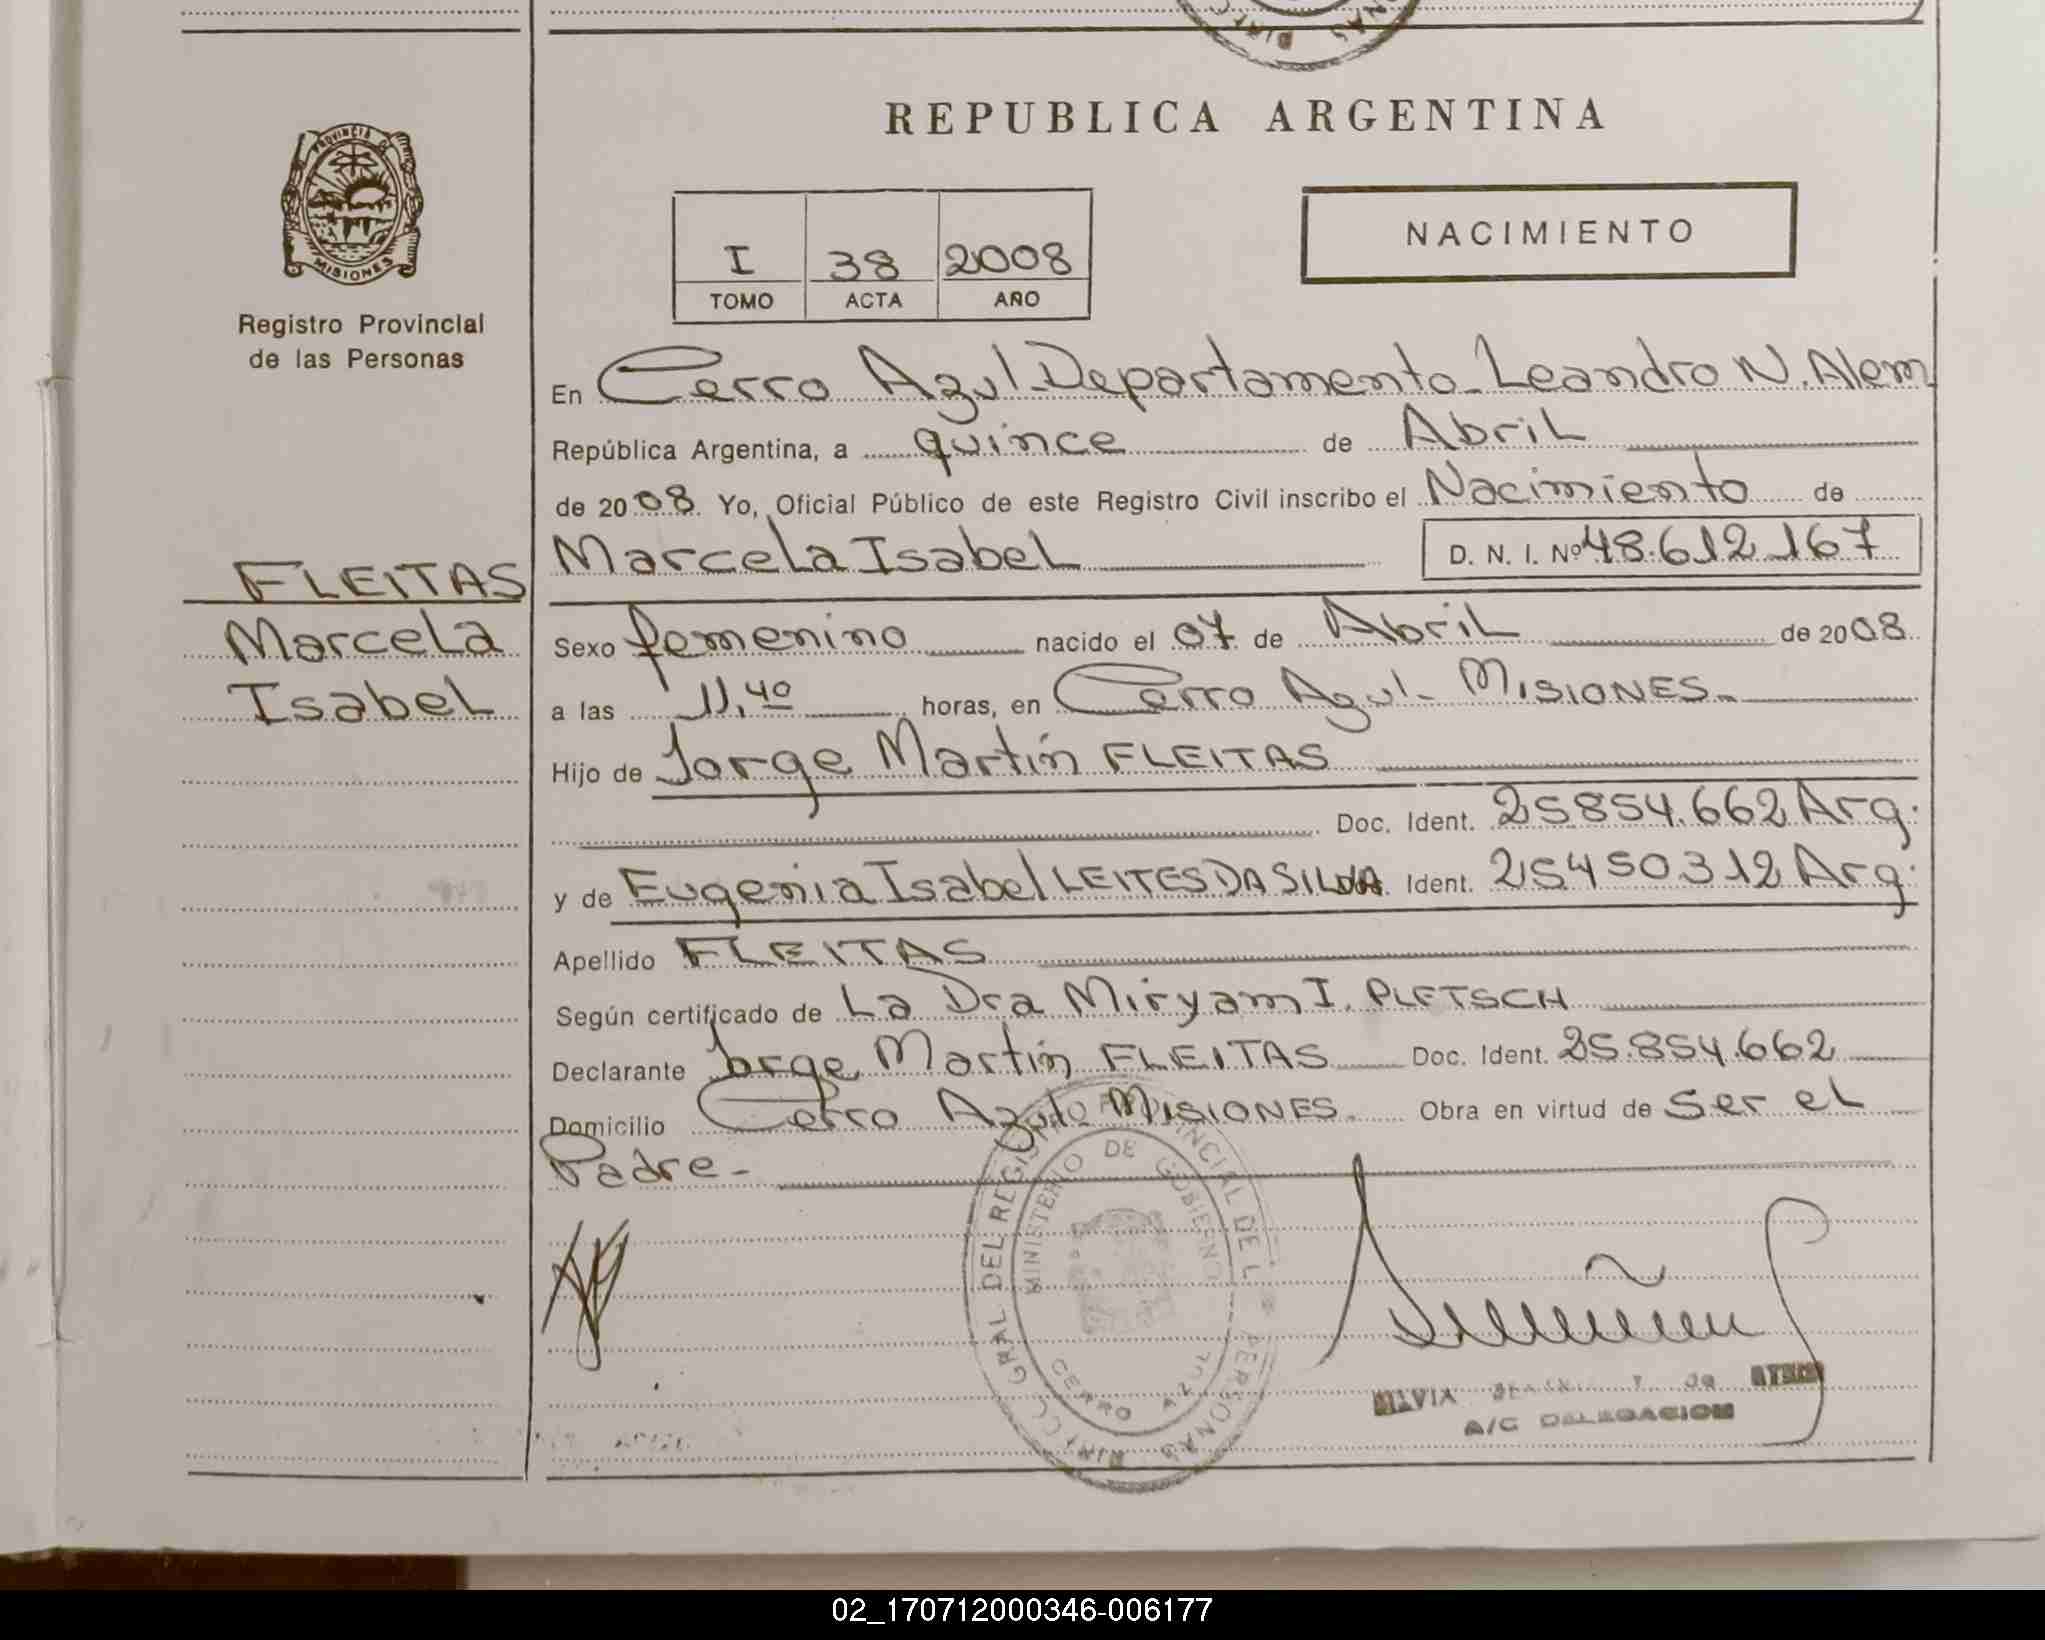 REPUBLICA ARGENTINA
PROVINCIA DE
MISIONES
Registro Provincial
de las Personas
NACIMIENTO
I 38 2008
TOMO ACTA AÑO
En Cerro Azul-Departamento-Leandro N. Alem
República Argentina, a quince de Abril
de 2008. Yo, Oficial Público de este Registro Civil inscribo el Nacimiento de
Marcela Isabel D. N. I. Nº 48.612.167
FLEITAS
Marcela
Isabel
Sexo femenino nacido el 07 de Abril de 2008
a las 11,40 horas, en Cerro Azul- MISIONES-
Hijo de Jorge Martín FLEITAS
Doc. Ident. 25854.662 Arg.
y de Eugenia Isabel LEITES DA SILVA Ident. 25450312 Arg.
Apellido FLEITAS
Según certificado de La Dra Miryam I. PLETSCH
Declarante Jorge Martín FLEITAS Doc. Ident. 25.854.662
Domicilio Cerro Azul- MISIONES- Obra en virtud de ser el
Padre-
GRAL DEL REGISTRO PROVINCIAL DE PERSONAS
MINISTERIO DE GOBIERNO
CERRO AZUL
A/C DELEGACION
02_170712000346-006177